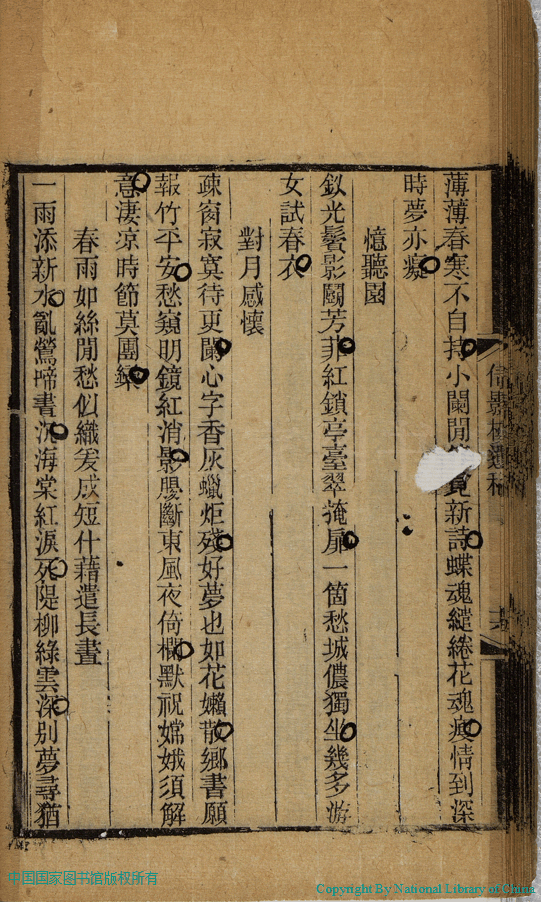 薄薄春寒不自持小闌閒覓新詩蝶魂繾綣花魂瘦情到深
時夢亦癡
憶聽園
釵光鬢影鬬芳菲紅鎖亭臺翠掩扉一箇愁城儂獨坐幾多游
女試春衣
對月感懷
疎窗寂寞待更闌心字香灰蠟炬殘好夢也如花嬾散鄉書願
報竹平安愁窺明鏡紅消影腰斷東風夜倚欄默祝嫦娥須解
意淒凉時節莫團欒
春雨如絲閒愁似織爰成短什藉遣長晝
一雨添新水亂鶯啼晝沉海棠紅淚死隄柳綠雲深別夢尋猶
中国国家图书馆版权所有
Copyright By National Library of China